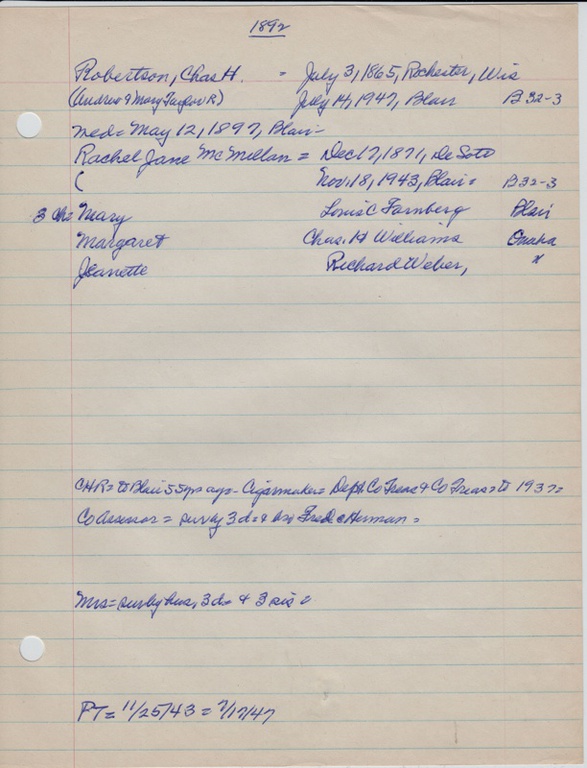 1892
Robertson, Chas H. = July 3, 1865, Rochester, Wis
(Andrew & Mary Taylor R) July 14, 1947, Blair B 32-3
med = May 12, 1897, Blair =
Rachel Jane McMillan = Dec 17, 1871, DeSoto
( Nov. 18, 1943, Blair = B 32-3
3 ch = Mary Louis C Farnberg Blair
Margaret Chas. H Williams Omaha
Jeanette Richard Weber, x
CHR = to Blair 55 yrs ago - Cigarmaker = Dept. Co Treas & Co Treas = to 1937 =
Co Assessor = surv by 3 d = & bro Fred & Herman =
Mrs = surv by hus, 3 d = & 3 sis =
PT = 11/25/43 = 7/17/47